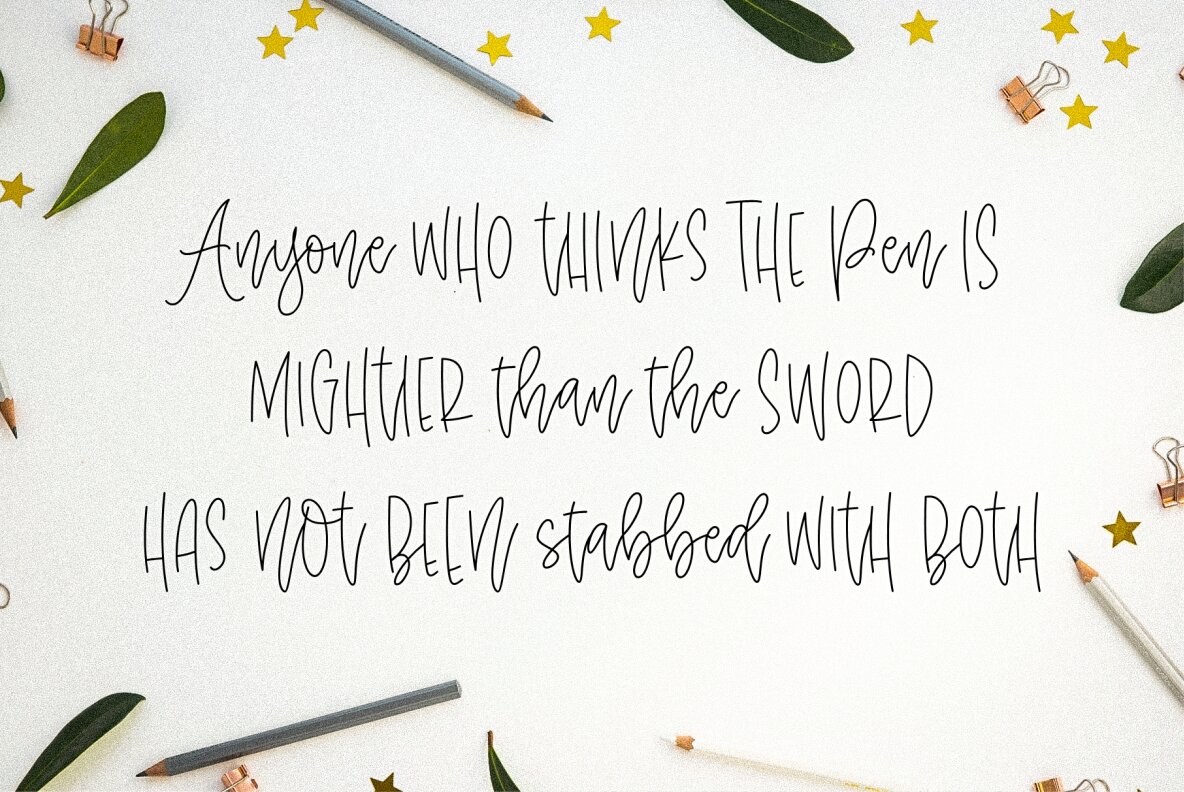 Anyone WHO tHINKS THE Pen IS
MIGHtIER than the SWORD
HAS NOt BEEN stabbed WItH BOtH